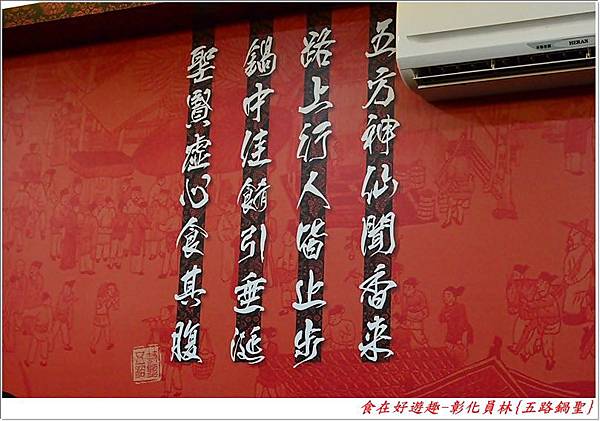 五方神仙聞香来
路上行人皆止步
鍋中佳餚引垂涎
聖賢虛心食其腹
HERAN
食在好遊趣-彰化員林{五路鍋聖}